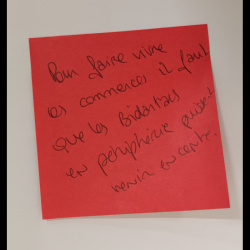 Pour faire vivre
les commerces il faut
que les Bidartars
en périphérie puissent
venir en centre.